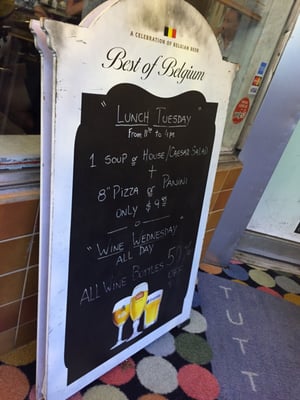 A CELEBRATION OF BELGIAN BEER
Best of Belgium
"LUNCH TUESDAY"
FROM 11:00 TO 4 PM
1 SOUP OR HOUSE/CAESAR SALAD
+
8" PIZZA OR PANINI
ONLY $9.95
"WINE WEDNESDAY"
ALL DAY
ALL WINE BOTTLES 50% OFF
TUTT